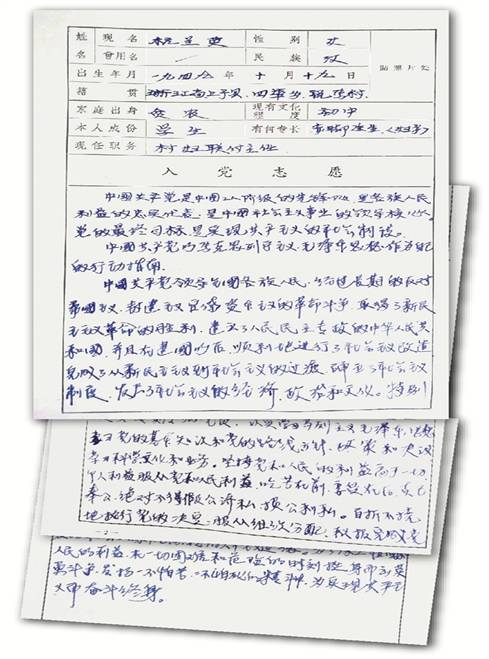 姓 现名 杭兰英 性别 女
名 曾用名 / 民族 汉
贴照片处
出生年月 一九四九年十月十九日
籍贯 浙江省上虞
家庭出身 贫农 现有文化程度 初中
本人成份 学生 有何专长 赤脚医生
现任职务 村妇联付主任
入党志愿
中國共产党是中國工人阶级的先锋队,是各族人民
利益的忠实代表,是中國社会主义事业的领导核心。
党的最终目标,是实现共产主义的社会制度。
中國共产党以马克思列宁主义、毛泽东思想作为自己
的行动指南。
中國共产党领导全國各族人民,经过长期的反对
帝國主义、封建主义、官僚资本主义的革命斗争,取得了新民
主主义革命的胜利,建立了人民民主专政的中华人民共
和國,并且在建國以后,顺利地进行了社会主义改造,
完成了从新民主主义到社会主义的过渡,确立了社会主义
制度,发展了社会主义的经济、政治和文化。特别
列主义毛泽东思想
学习党的基本知识和党的路线、方针、政策和决议
学习科学文化和业务。坚持党和人民的利益高于一切
个人利益服从党和人民利益,吃苦在前,享受在后,克己
奉公,绝对不得假公济私,损公利私。百折不挠
地执行党的决定,服从组织分配,积极完成党
人民的利益,在一切困难和危险的时刻挺身而出,英
勇斗争,发扬一不怕苦,二不怕死的精神,为实现共产主
义而奋斗终身。